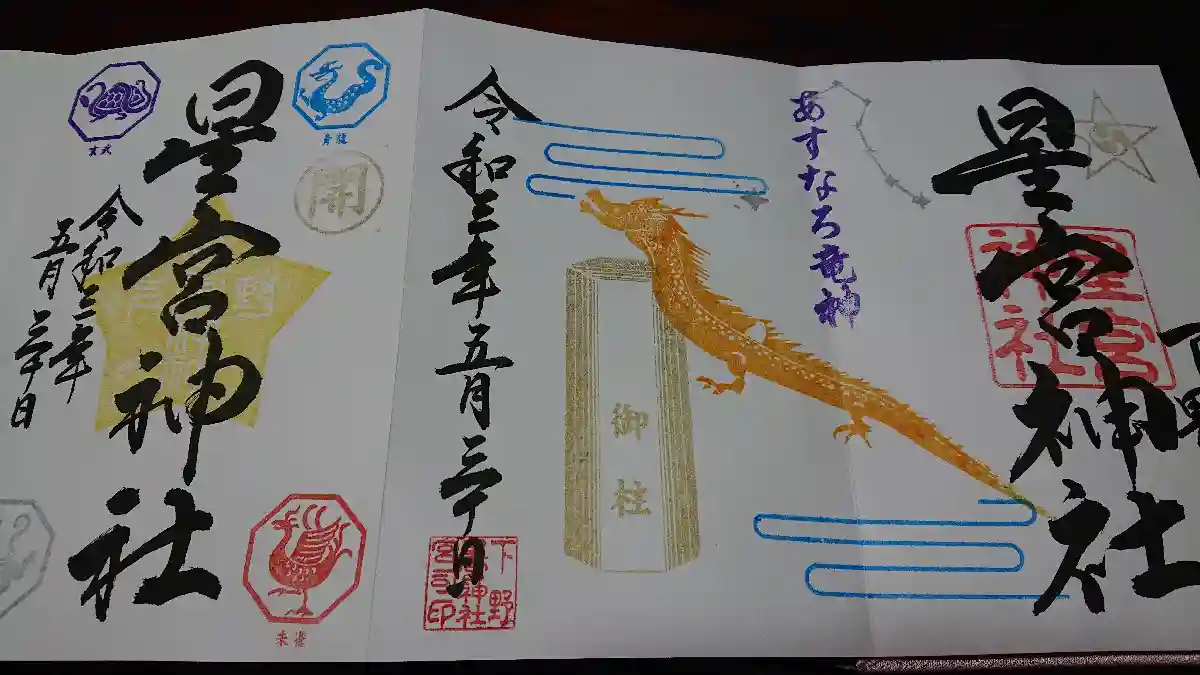 下野
星宮神社
星宮
神社
あすなろ竜神
御柱
令和三年五月三十日
青龍
開
星宮神社
朱雀
玄武
令和三年
五月三十日